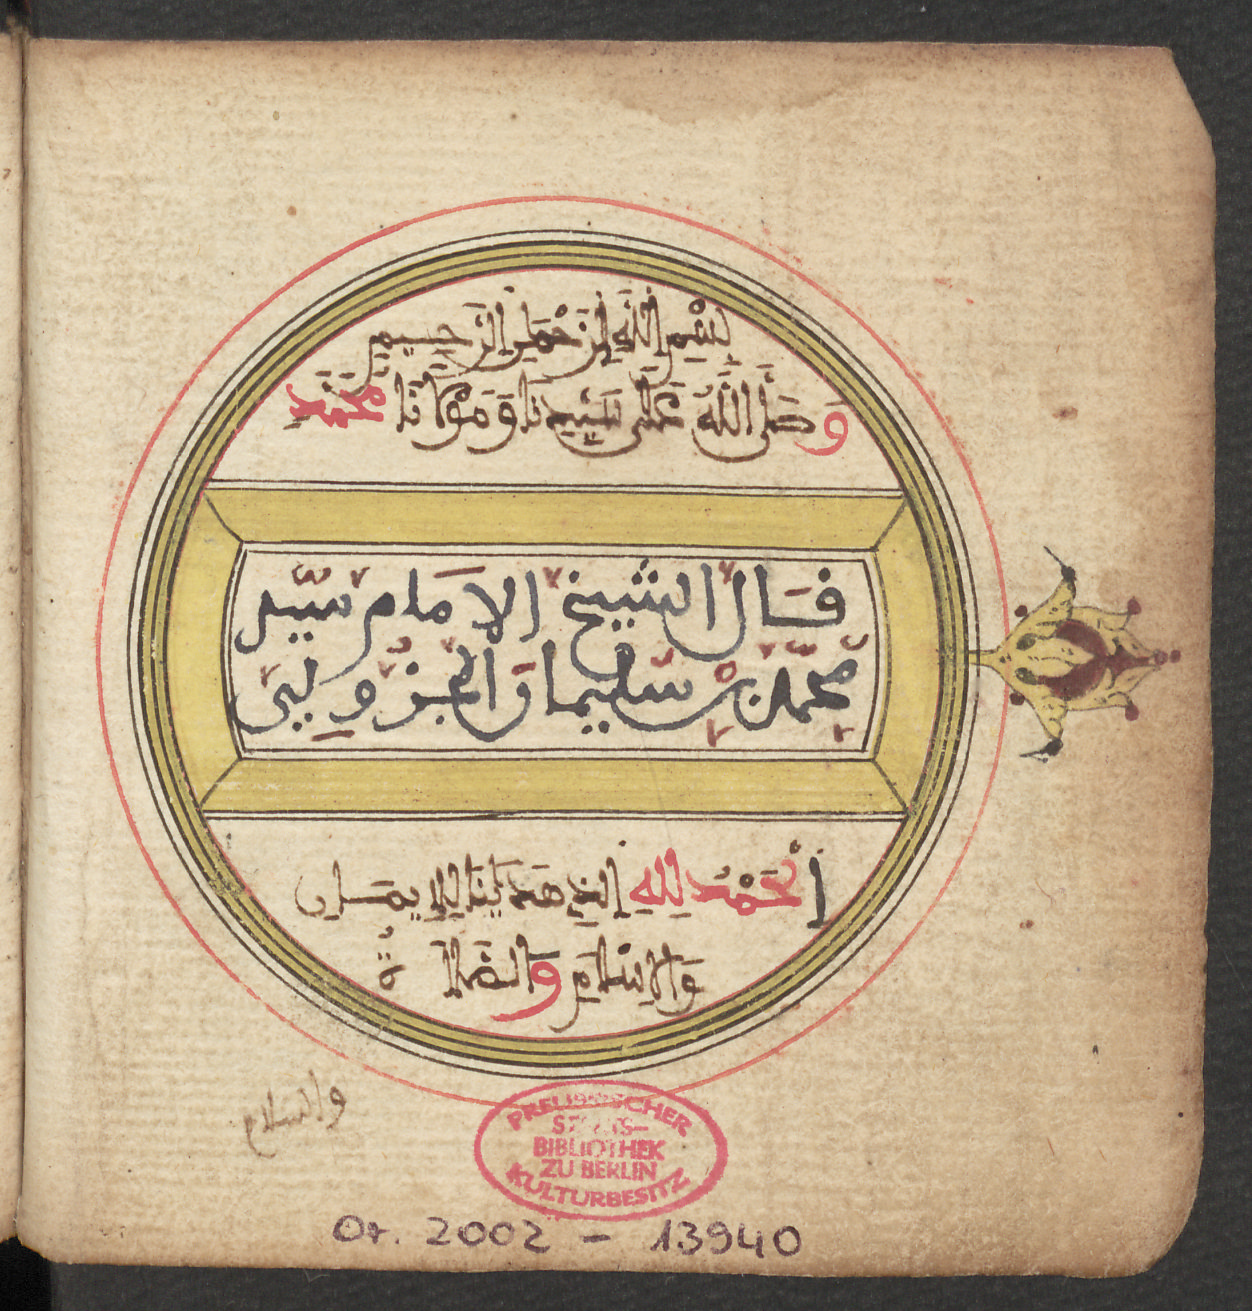 بِسْمِ اللَّهِ الرَّحْمَٰنِ الرَّحِيمِ
وَصَلَّى اللَّهُ عَلَى سَيِّدِنَا وَمَوْلَانَا مُحَمَّدٍ
قَالَ الشيخ الامَام سيّد
محمّد بن سليمان الجزولي
اَلْحَمْدُ لِلهِ الذِي هَدَيٰنَا لِلْإِيمَٰنِ
وَالإِسْلَٰمِ وَالصَّلَا ةُ
والسلام
PREUSSISCHER
STAATS-
BIBLIOTHEK
ZU BERLIN
KULTURBESITZ
Or. 2002 - 13940